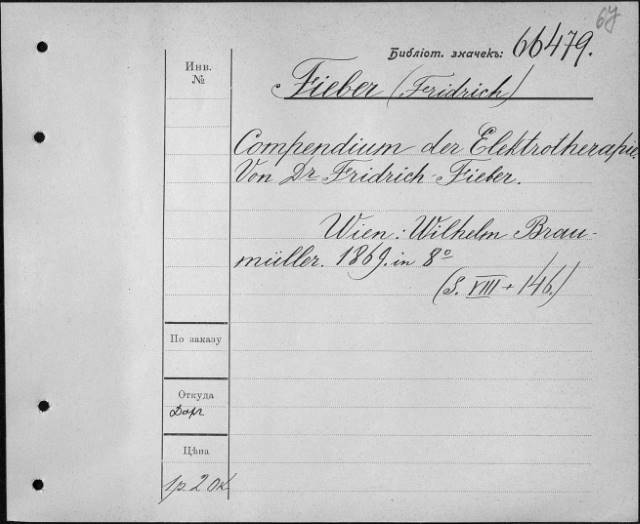 67
Библіот. значекъ: 66479.
Инв.
№
Fieber (Fridrich)
Compendium der Elektrotherapie.
Von Dr Fridrich Fieber.
Wien: Wilhelm Brau-
müller. 1869. in 8º
(S. VIII + 146.)
По заказу
Откуда
Дарг
Цѣна
1р. 20к